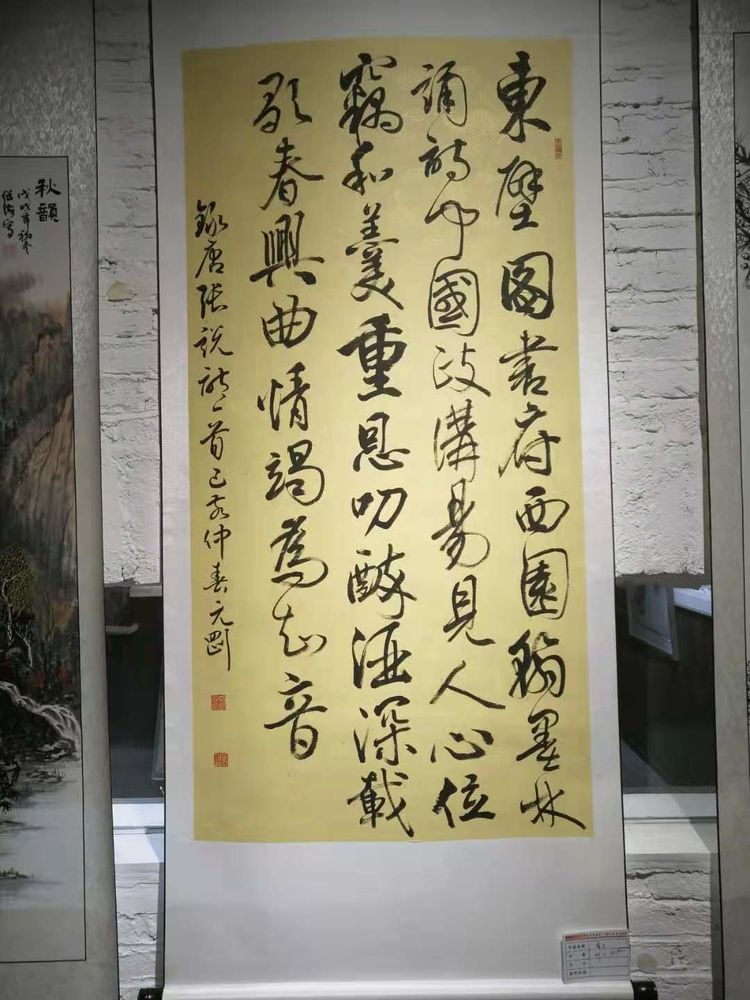 東壁图書府西園翰墨林
誦詩聞國政講易見人心位
竊和羹重恩叨醉酒深載
歌春興曲情竭為知音
錄唐張說詩一首己亥仲春元剛
秋韻
戊戌年初冬